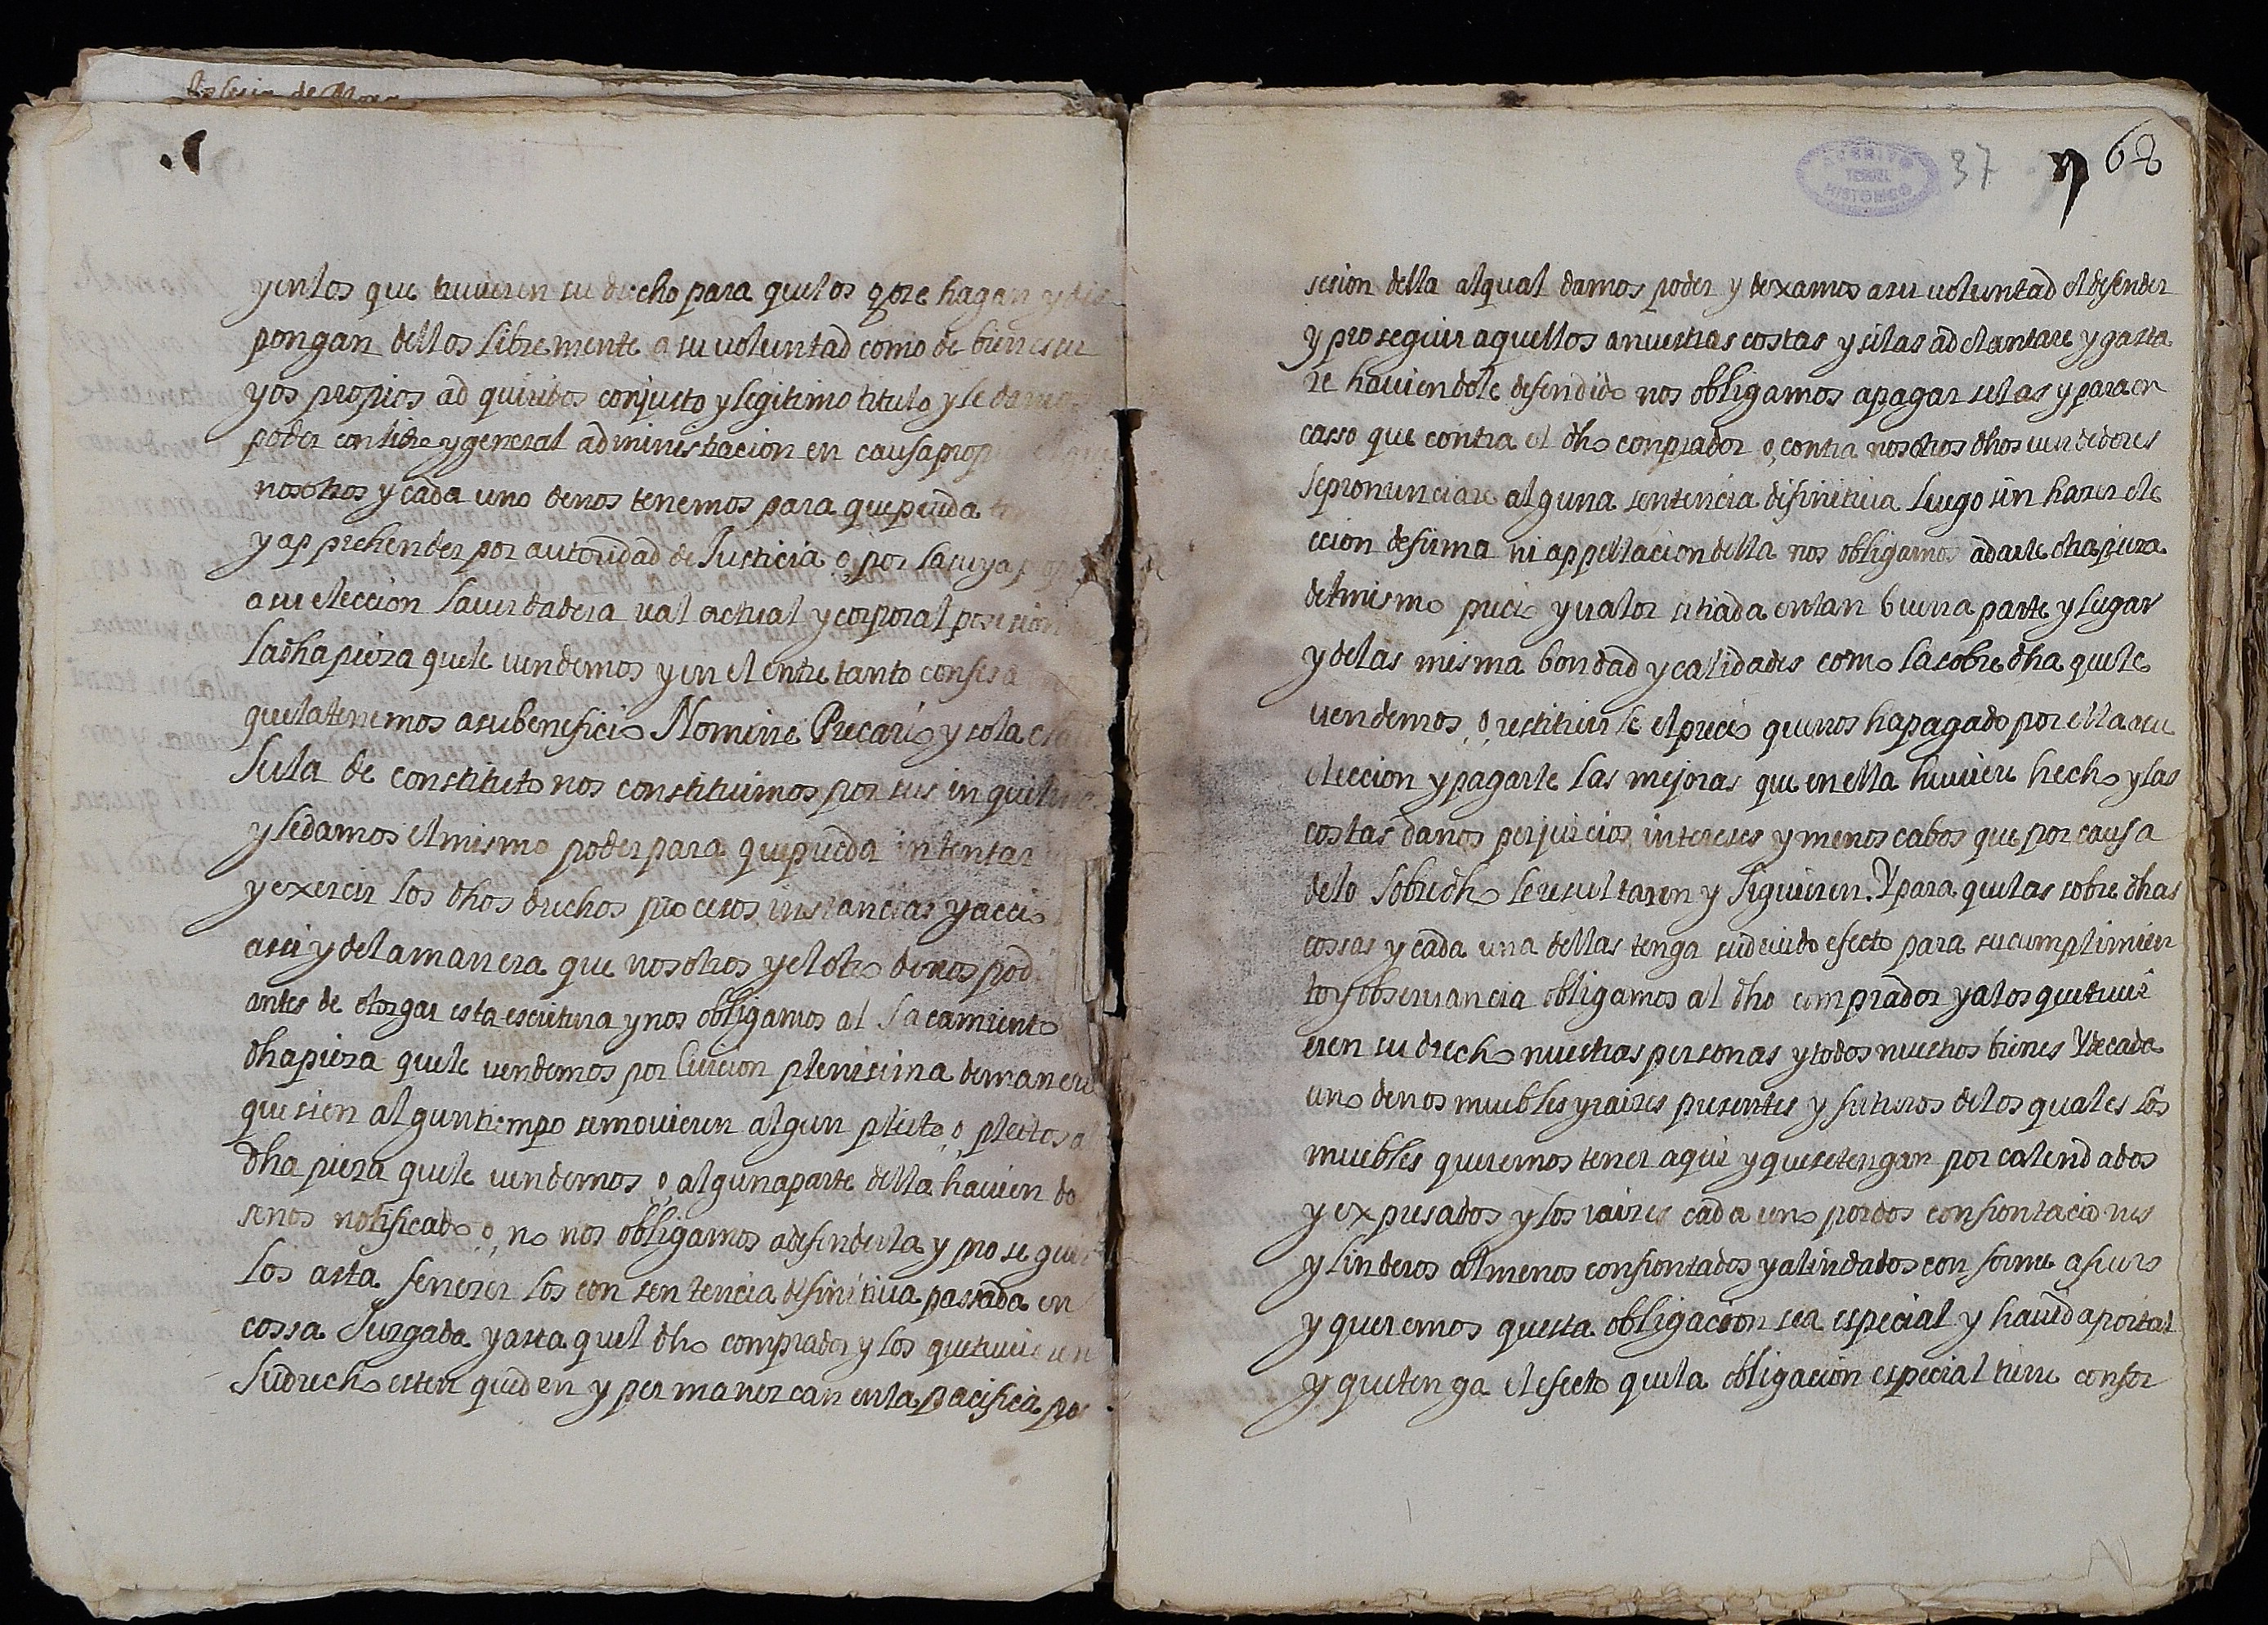 Iglesia de
y en los que tuvieren su drecho para que los goze hagan y dis
pongan dellos libremente a su voluntad como de bienes su
yos propios adquiridos con justo y legitimo titulo y le damos
poder con libre y general administracion en causa propia
nosotros y cada uno de nos tenemos para que pueda
y apprehender por autoridad de Justicia o por la suya
a su eleccion la verdadera ual actual y corporal posesion
la dha pieza que le vendemos y en el entre tanto confes
que la tenemos a su beneficio Nomine Precario y sola clau
sula de constituto nos constituimos por sus inquilinos
y le damos el mismo poder para que pueda intentar
y exercir los dhos drechos procesos instancias y accio
asi y de la manera que nosotros y el otro de nos pod
antes de otorgar esta escritura y nos obligamos al sacamiento
dha pieza que le vendemos por Euicion plenisima de manera
que si en algun tiempo se movieren algun pleito, o, pleitos a
dha pieza que le vendemos o alguna parte della haviendo
senos notificado, o, no nos obligamos a defenderla y proseguir
los asta fenezer los con sentencia difinitiva passada en
cossa Juzgada y asta quel dho comprador y los que tuvieren
su drecho esten queden y permanezcan en la pacifica pos
37 68
sesion della al qual damos poder y dexamos a su voluntad el defender
y proseguir aquellos a nuestras costas y si las adelantare y gasta
re haviendole defendido nos obligamos a pagar selas y para en
casso que contra el dho conprador o, contra nosotros dhos vendedores
se pronunciare alguna sentencia difinitiva luego sin hazer ele
ccion de firma ni appellacion della nos obligamos a darle otra pieza
del mismo precio y valor sitiada en tan buena parte y lugar
y de las misma bondad y calidades como la sobre dha que le
vendemos, o, restituir le el precio que nos ha pagado por ella a su
eleccion y pagarle las mejoras que en ella huviere hecho y las
costas danos perjuicios intereses y menos cabos que por causa
de lo sobredho le resultaren y siguieren. Y para que las sobre dhas
cossas y cada una dellas tenga su devido efecto para su cumplimien
to y observancia obligamos al dho comprador y a los que tuvie
eren su drecho nuestras personas y todos nuestros bienes Y de cada
uno de nos muebles y raizes presentes y futuros de los quales los
muebles queremos tener aqui y que se tengan por calendados
y expresados y los raizes cada uno por dos confrontaciones
y linderos al menos confrontados y alindados con forme a fuero
y queremos questa obligacion sea especial y havida por tal
y que tenga el efecto que la obligacion especial tiene confor